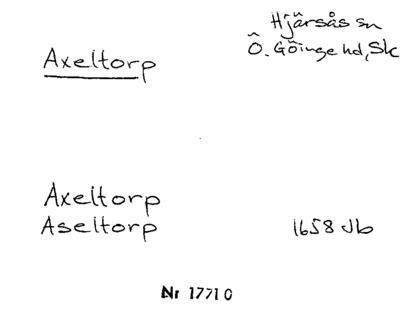 Axeltorp
Hjärsås sn
Ö. Göinge hd, Sk
Axeltorp
Aseltorp 1658 Jb
Nr 17710